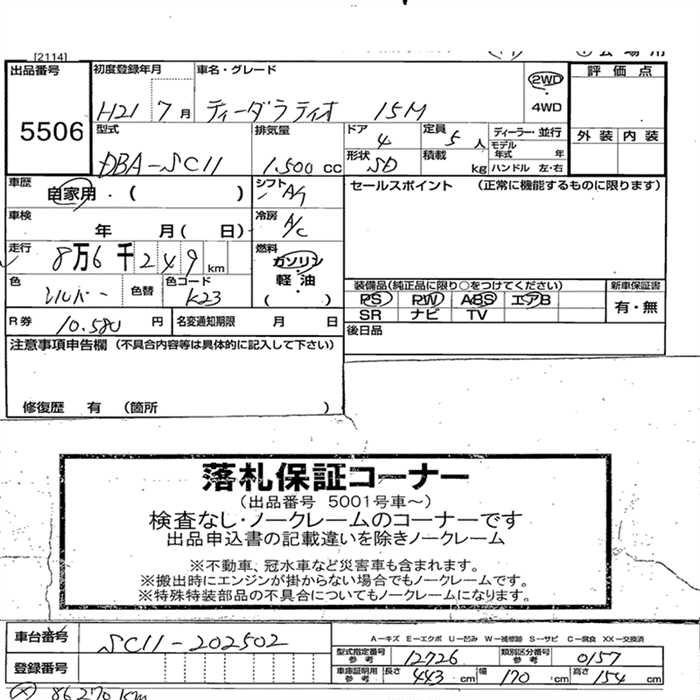 [2114]
出品番号 初度登録年月 車名・グレード 2WD 評価点
5506 H21 7月 ティーダラティオ 15M 4WD
型式 排気量 ドア 4 定員 5人 ディーラー・並行 外装 内装
モデル年式 年
DBA-SC11 1.500cc 形状 SD 積載 kg ハンドル 左・右
車歴 自家用・( ) シフト A/T セールスポイント (正常に機能するものに限ります)
車検 年 月( 日) 冷房 A/C
走行 8万6千249km 燃料 ガソリン・軽油( )
色 シルバー 色替 色コード K23 装備品(純正品に限り○をつけてください) 新車保証書
PS PW ABS エアB 有・無
SR ナビ TV
R券 10.580円 名変通知期限 月 日 後日品
注意事項申告欄 (不具合内容等は具体的に記入して下さい)
修復歴 有 (箇所 )
落札保証コーナー
(出品番号 5001号車~)
検査なし・ノークレームのコーナーです
出品申込書の記載違いを除きノークレーム
※不動車、冠水車など災害車も含まれます。
※搬出時にエンジンが掛からない場合でもノークレームです。
※特殊特装部品の不具合についてもノークレームになります。
車台番号 SC11-202502 A-キズ E-エクボ U-凹み W-補修跡 S-サビ C-腐食 XX-交換済
型式指定番号 参考 12726 類別区分番号 参考 0157
登録番号 車庫証明用 参考 長さ 443cm 幅 170cm 高さ 154cm
86270km